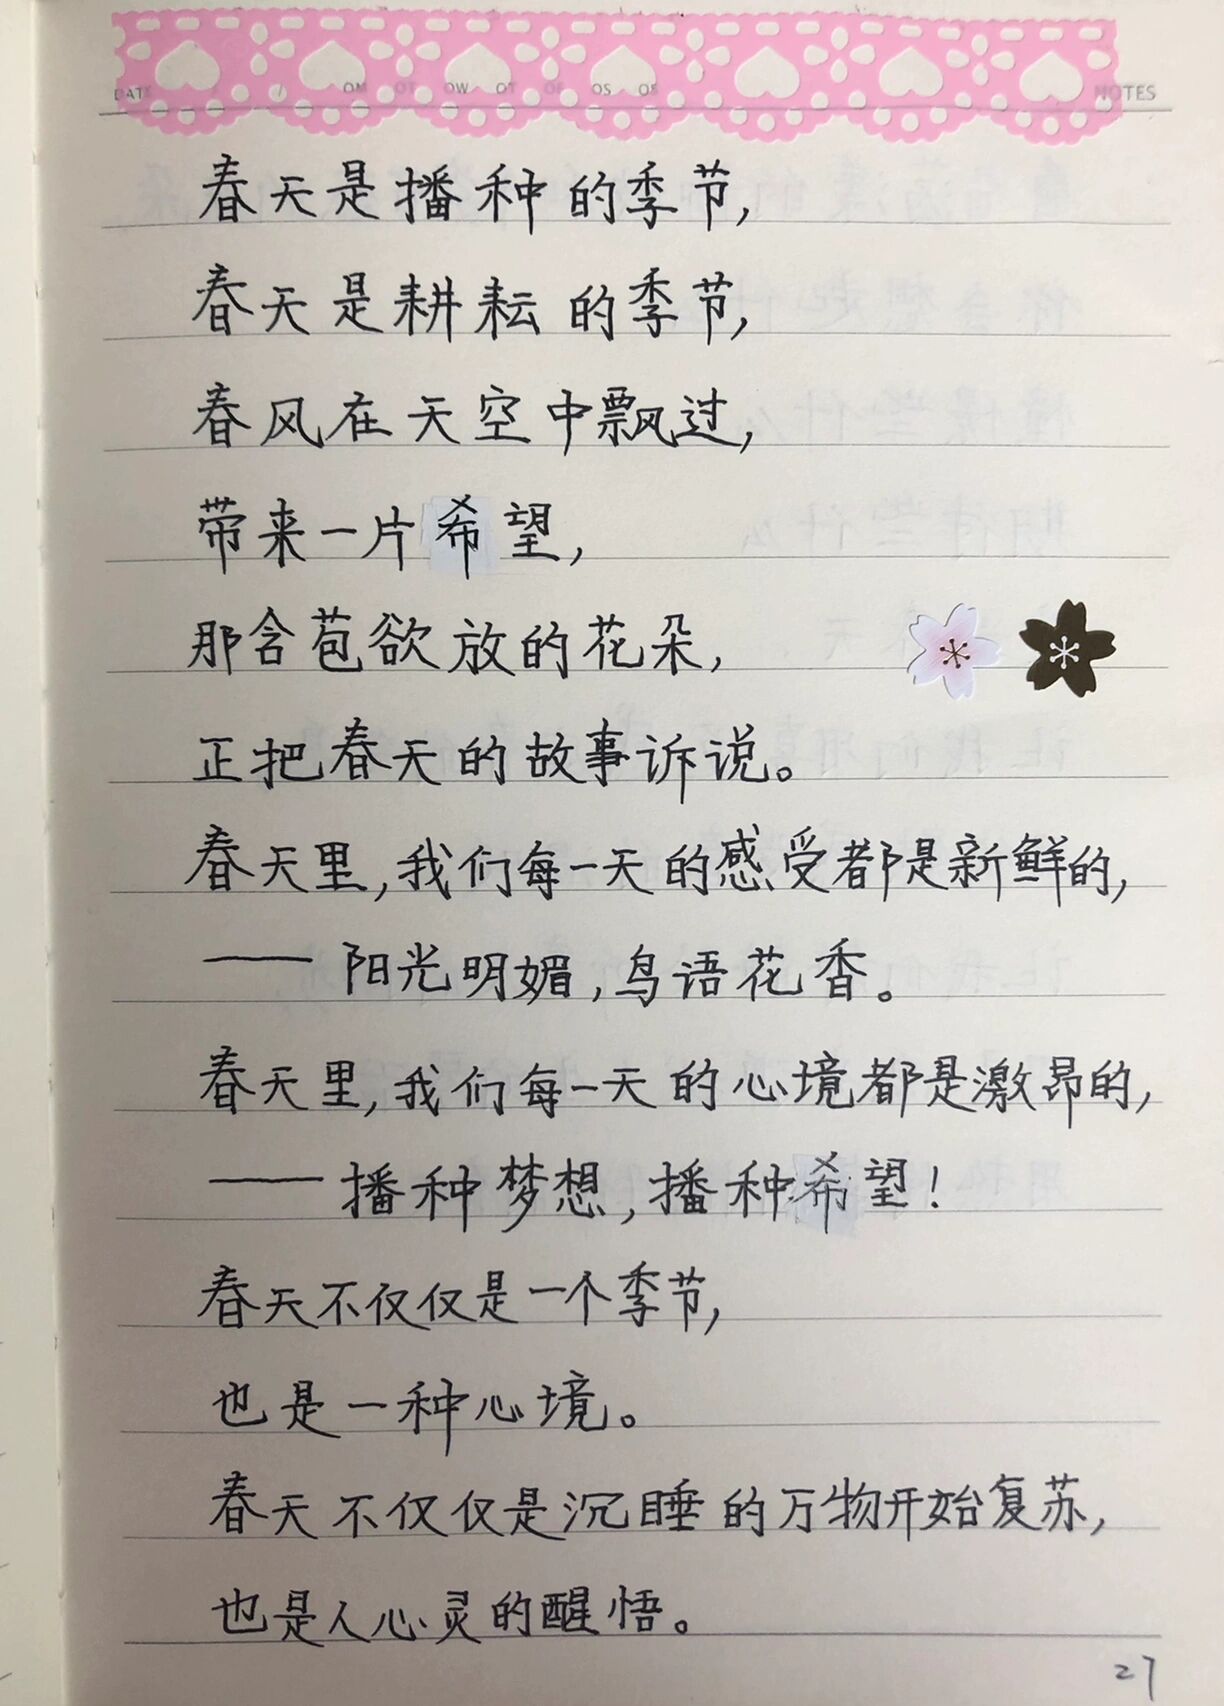 DATE
NOTES
春天是播种的季节,
春天是耕耘的季节,
春风在天空中飘过,
带来一片希望,
那含苞欲放的花朵,
正把春天的故事诉说。
春天里,我们每一天的感受都是新鲜的,
——阳光明媚,鸟语花香。
春天里,我们每一天的心境都是激昂的,
——播种梦想,播种希望!
春天不仅仅是一个季节,
也是一种心境。
春天不仅仅是沉睡的万物开始复苏,
也是人心灵的醒悟。
27